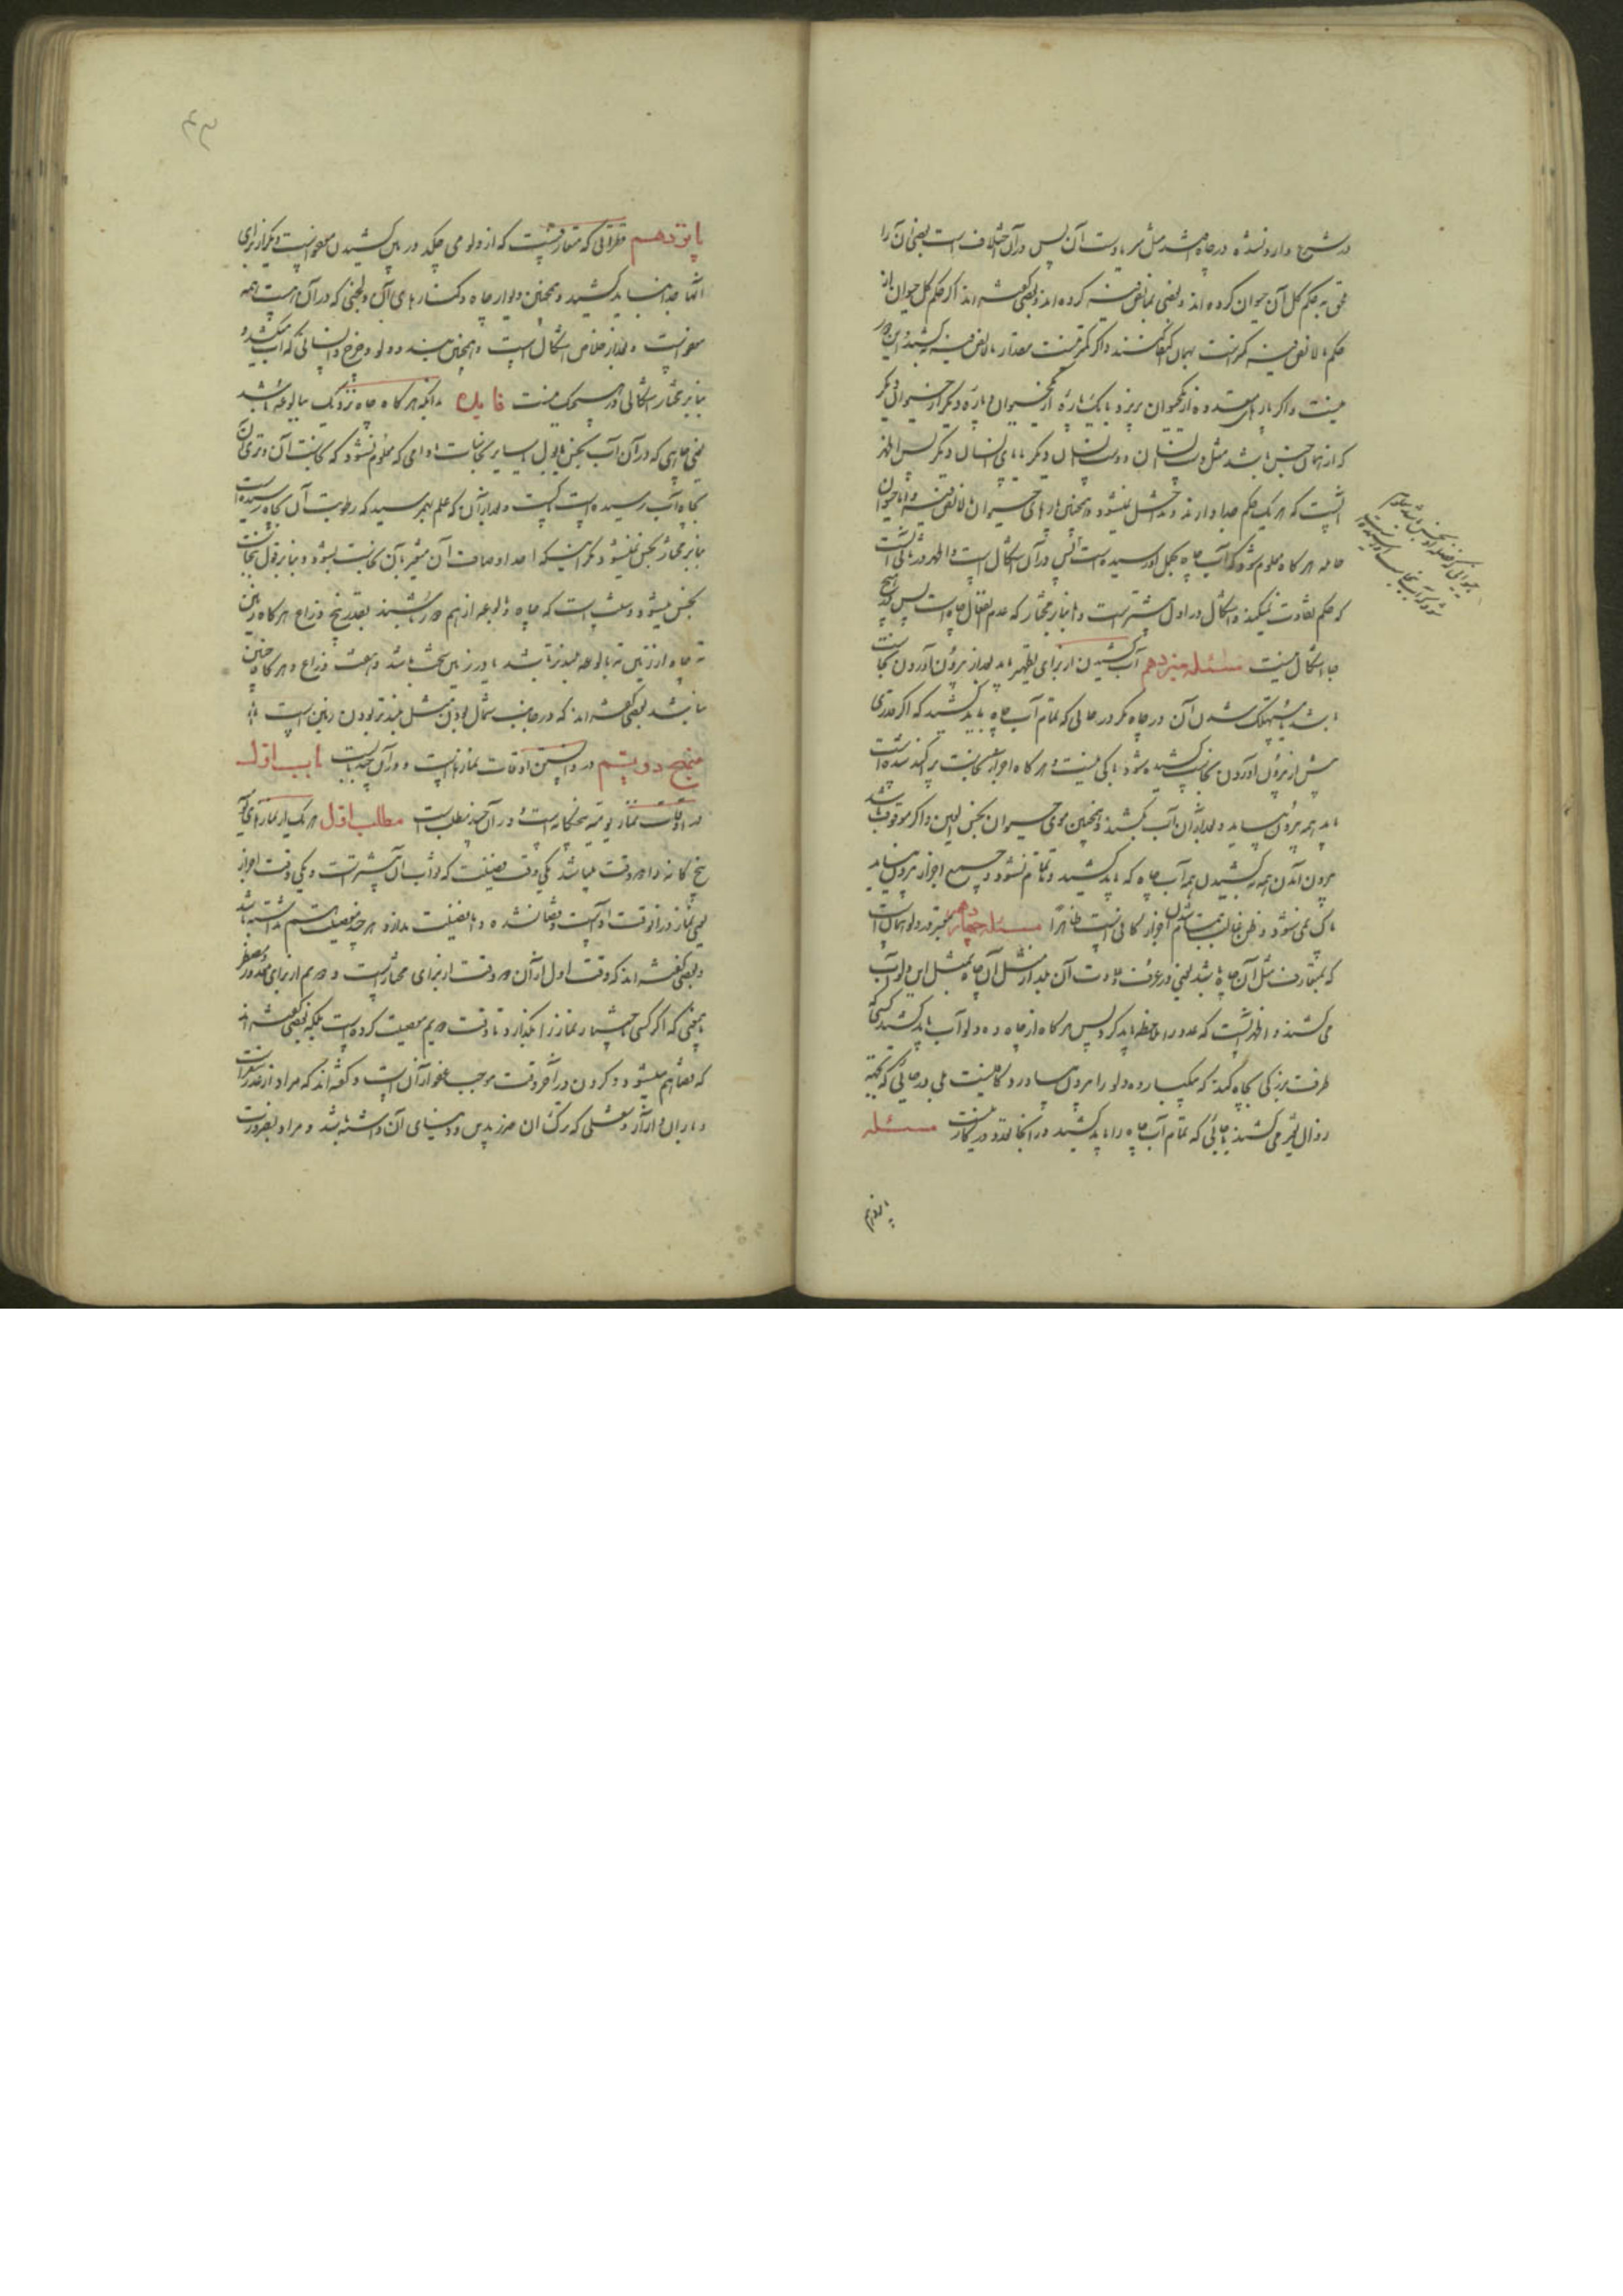 در شرع وارد نشده در چاه باشد مثل سر یا دست آن پس در آن خلاف است بعضی آن را
ملحق به حکم کل آن حیوان کرده اند و بعضی بما لا نص فیه کرده اند و بعضی گفته اند اگر حکم کل حیوان از
حکم ما لا نص فیه کمتر است بهمان اکتفا کنند و اگر کمتر نیست مقدار ما لا نص فیه کشند و این دور
نیست و اگر پارهای متعدده از یک حیوان بریزد یا یک پاره از یک حیوان و پاره دیگر از حیوانی دیگر
که از همان جنس باشد مثل دست انسان و دست انسان دیگر یا پای انسان دیگر پس اظهر
آنست که هر یک حکم جدا دارند و تداخل نمیشود و همچنین پارهای حیوان ما لا نص فیه و اما حیوان
حامله هرگاه معلوم شود که آب چاه بحمل او رسیده است پس در آن اشکال است و اظهر در ثانی آنست
که حکم تفاوت نمیکند و اشکال در اول بیشتر است و اما بنابر مختار که عدم انفعال چاه است پس هیچ
جا اشکال نیست مسئله سیزدهم آب کشیدن از برای تطهیر باید بعد از بیرون آوردن نجاست
باشد یا مستهلک شدن آن در چاه مگر در جائی که تمام آب چاه باید کشید که اگر قدری
پیش از بیرون آوردن نجاست کشیده شود باکی نیست و هرگاه اجزاء نجاست پراکنده شده است
باید همه بیرون بیاید و بعد از آن آب بکشند و همچنین موی حیوان نجس العین و اگر موقوف باشد
بیرون آمدن همه بکشیدن همه آب چاه که باید کشید و تا تمام نشود و جمیع اجزاء بیرون نیاید
پاک نمی شود و ظن غالب بتمام شدن اجزاء کافی است ظاهرا مسئله چهاردهم معتبر در دلو همان است
که متعارف مثل آن چاه باشد یعنی در عرف و عادت آن بلد از مثل آن چاه بمثل این دلو آب
می کشند و اظهر آنست که عدد را ملاحظه باید کرد پس هرگاه از چاه ده دلو آب باید کشید کسی که
ظرف بزرگی بچاه کند که بیکبار ده دلو را بیرون بیاورد کافی نیست بلی در جائی که بجهة
زوال تغیر می کشند یا جائی که تمام آب چاه را باید کشید در آنجا تعدد در کار نیست مسئله
پانزدهم
حیوانی که فضله او نجس باشد
شود که آب بنجاست او رسیده است
۴۳
پانزدهم قطراتی که متعارفیست که از دلو می چکد در بین کشیدن معفو است و دیگر از برای
آنها جدا نباید کشید و همچنین دیوار چاه و کنارهای آن و لجنی که در آن است همه
معفو است و بعد از خلاص اشکال است و همچنین ریسمان و دلو و چرخ و انسانی که آب میکشد و
بنابر مختار اشکالی در هیچ یک نیست فایده بدانکه هرگاه چاه نزدیک ببالوعه باشد
یعنی چاهی که در آن آب نجس یا بول یا سایر نجاسات باشد مادامی که معلوم نشود که نجاست آن و تری آن
بچاه آب رسیده است پاکست و بعد از آن که علم بهم رسید که رطوبت آن بچاه رسیده است
بنابر مختار نجس نمیشود مگر اینکه احد اوصاف آن متغیر بآن نجاست بشود و بنابر قول نجاست
نجس میشود و سنت است که چاه و بالوعه از هم دور باشند بقدر پنج ذراع هرگاه زمین
ته چاه از زمین ته بالوعه بلندتر باشد یا در زمین سخت باشد و هفت ذراع هرگاه چنین
نباشد بعضی گفته اند که در جانب شمال بودن مثل بلندتر بودن زمین است
منهج دویم در دانستن اوقات نمازها است و در آن چند بابست باب اول
در اوقات نماز یومیه پنجگانه است و در آن چند مطلب است مطلب اول هر یک از نمازهای
پنج گانه را دو وقت میباشد یکی وقت فضیلت که ثواب آن بیشتر است و یکی وقت اجزاء
یعنی نماز در آن وقت ادا است و قضا نشده و اما فضیلت ندارد هر چند معصیت هم نداشته باشد
و بعضی گفته اند که وقت اول از آن دو وقت از برای مختار است و دویم از برای معذور و مضطر
بمعنی که اگر کسی باختیار نماز را بگذارد تا وقت دویم معصیت کرده است بلکه بعضی گفته اند
که قضا هم میشود و کردن در آخر وقت موجب عفو از آن است و گفته اند که مراد از عذر سفر است
و باران و آزار و شغلی که ترک آن ضرر بدین و دنیای آن داشته باشد و مراد بضرورت